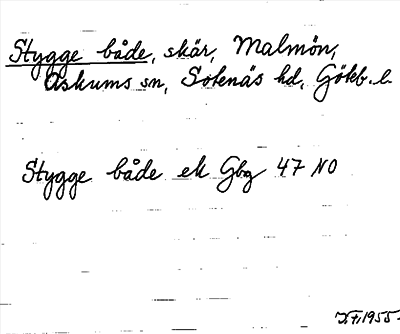 Stygge både, skär, Malmön,
Askums sn, Sotenäs hd, Göteb. l.
Stygge både ek Gbg 47 NO
1955